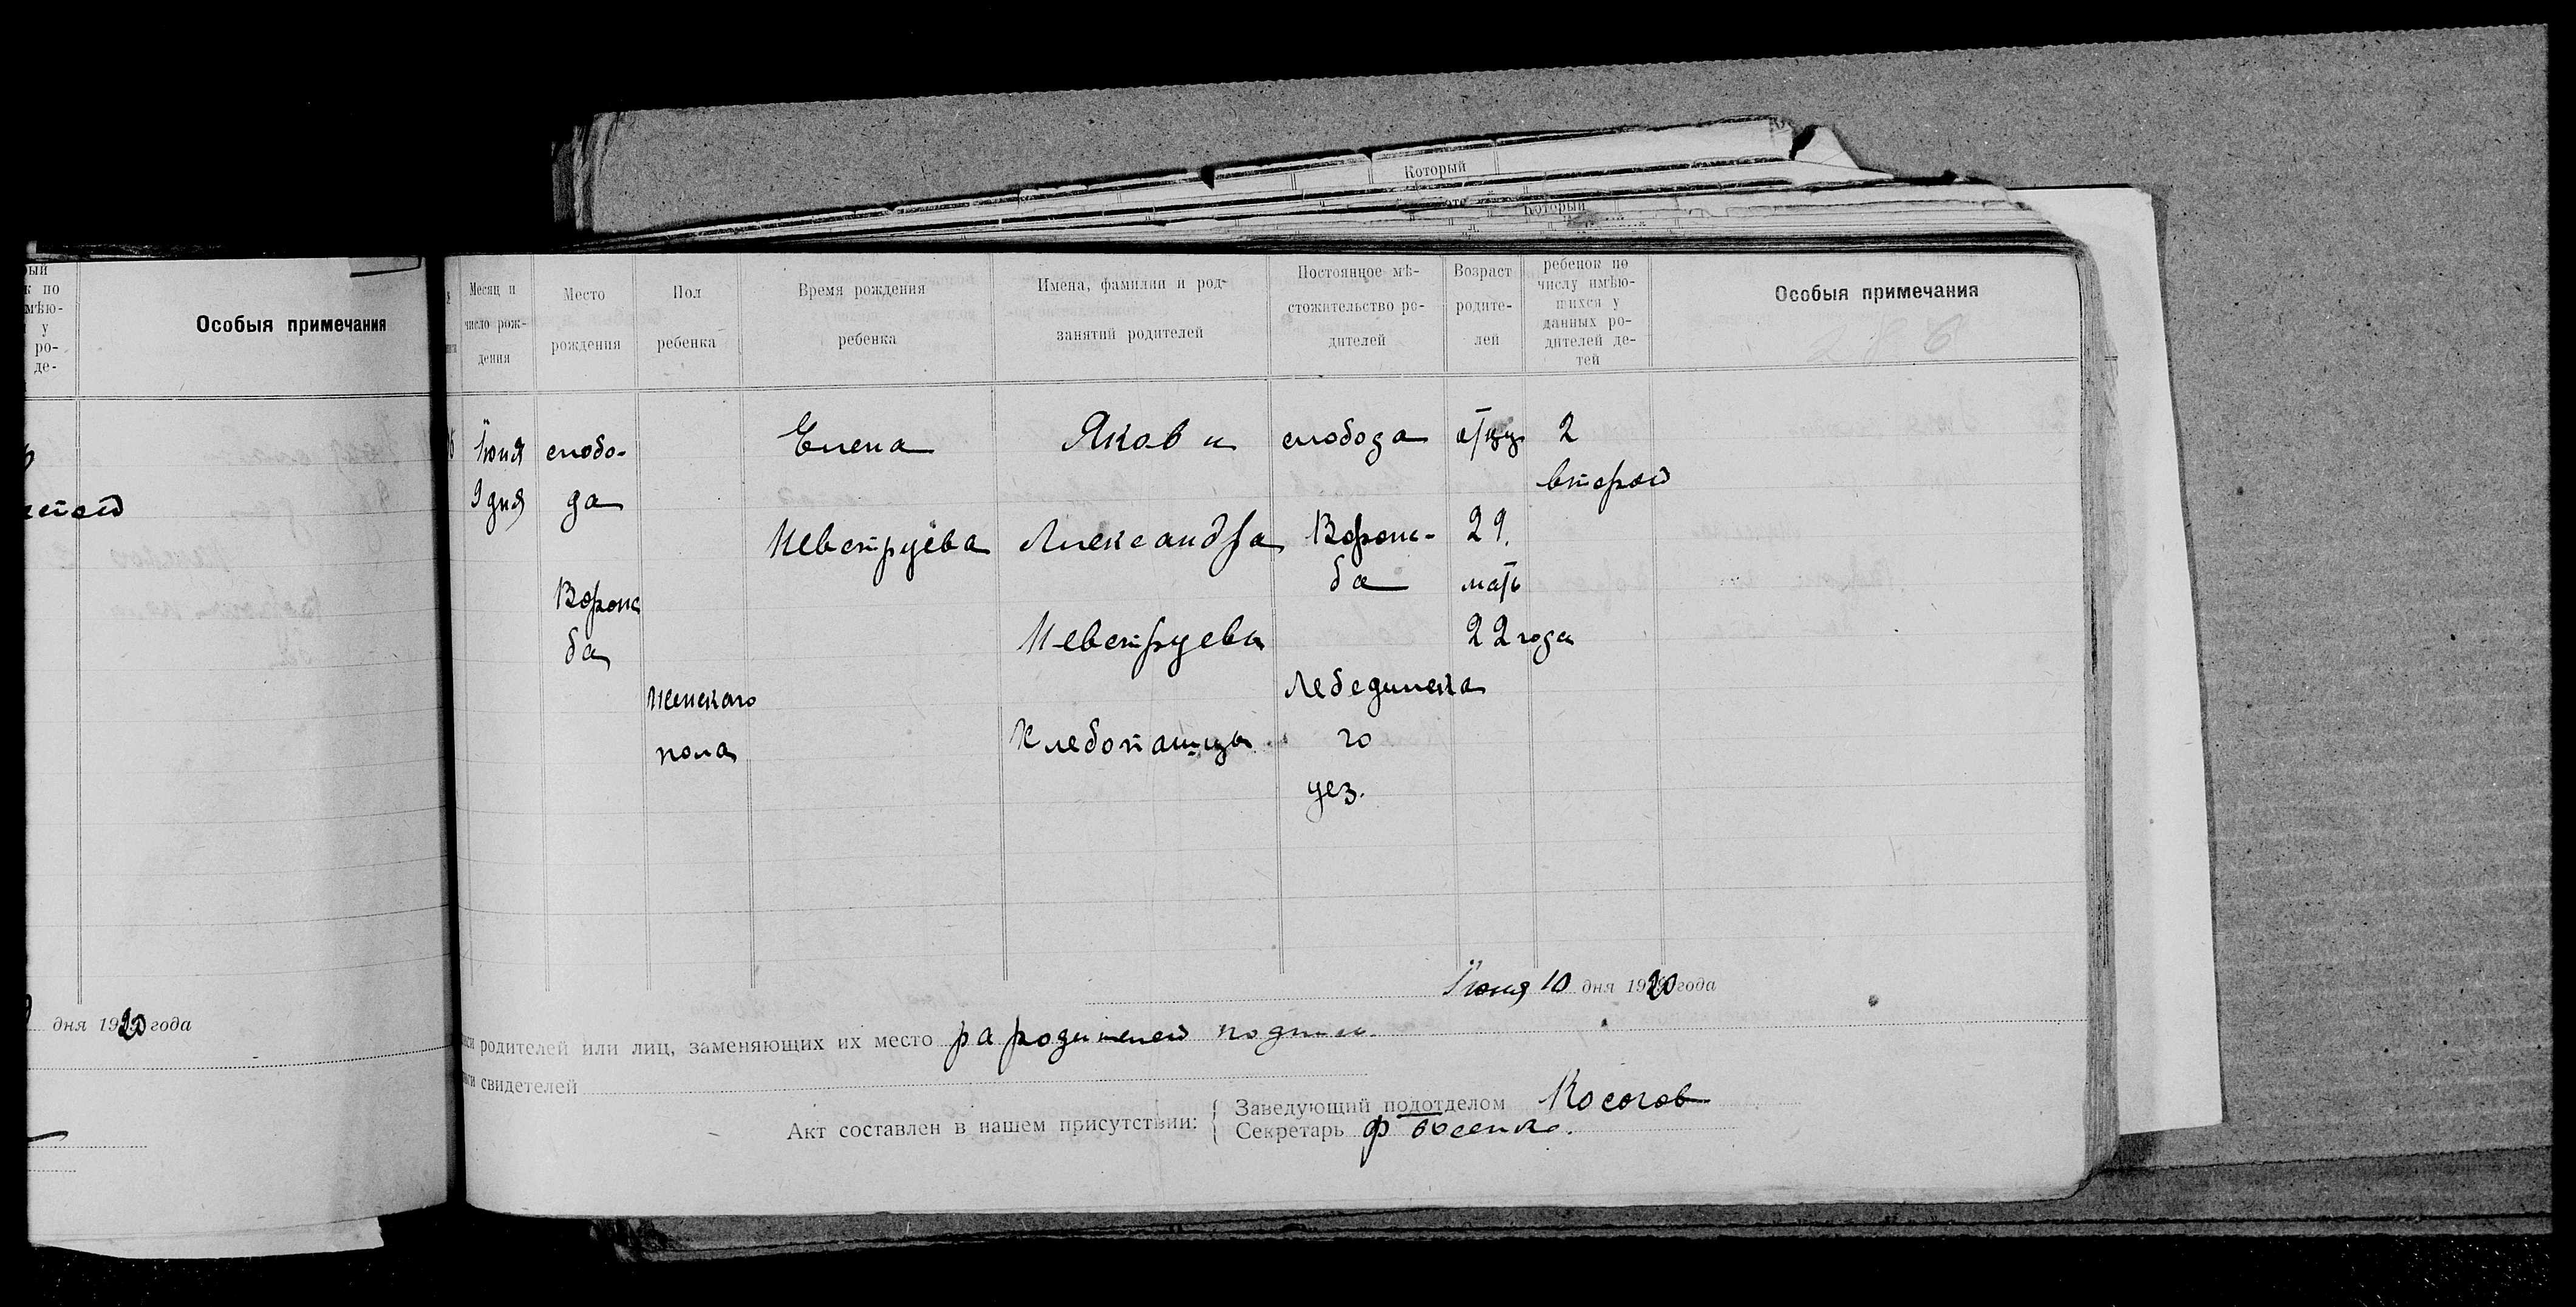 Который
Который
ый
к по
имѣю-
у
ро-
де-
Особыя примечания
дня 1920 года
Месяц и
число рож-
дения
Место
рождения
Пол
ребенка
Время рождения
ребенка
Имена, фамилии и род-
занятий родителей
Постоянное мѣ-
стожительство ро-
дителей
Возраст
родите-
лей
ребенок по
числу имѣю-
щихся у
данных ро-
дителей де-
тей
Особыя примечания
Іюня
9 дня
слобо-
да
Ворож
ба
Женскаго
пола
Елена
Невструева
Яков и
Александра
Невструевы
Хлебопашцы
слобода
Ворож-
ба
Лебединска
го
уез.
отцу
29.
мать
22 года
2
второй
Іюня 10 дня 1920 года
родителей или лиц, заменяющих их место родителей
свидетелей
Акт составлен в нашем присутствии:
Заведующий подотделом Косогов
Секретарь Ф